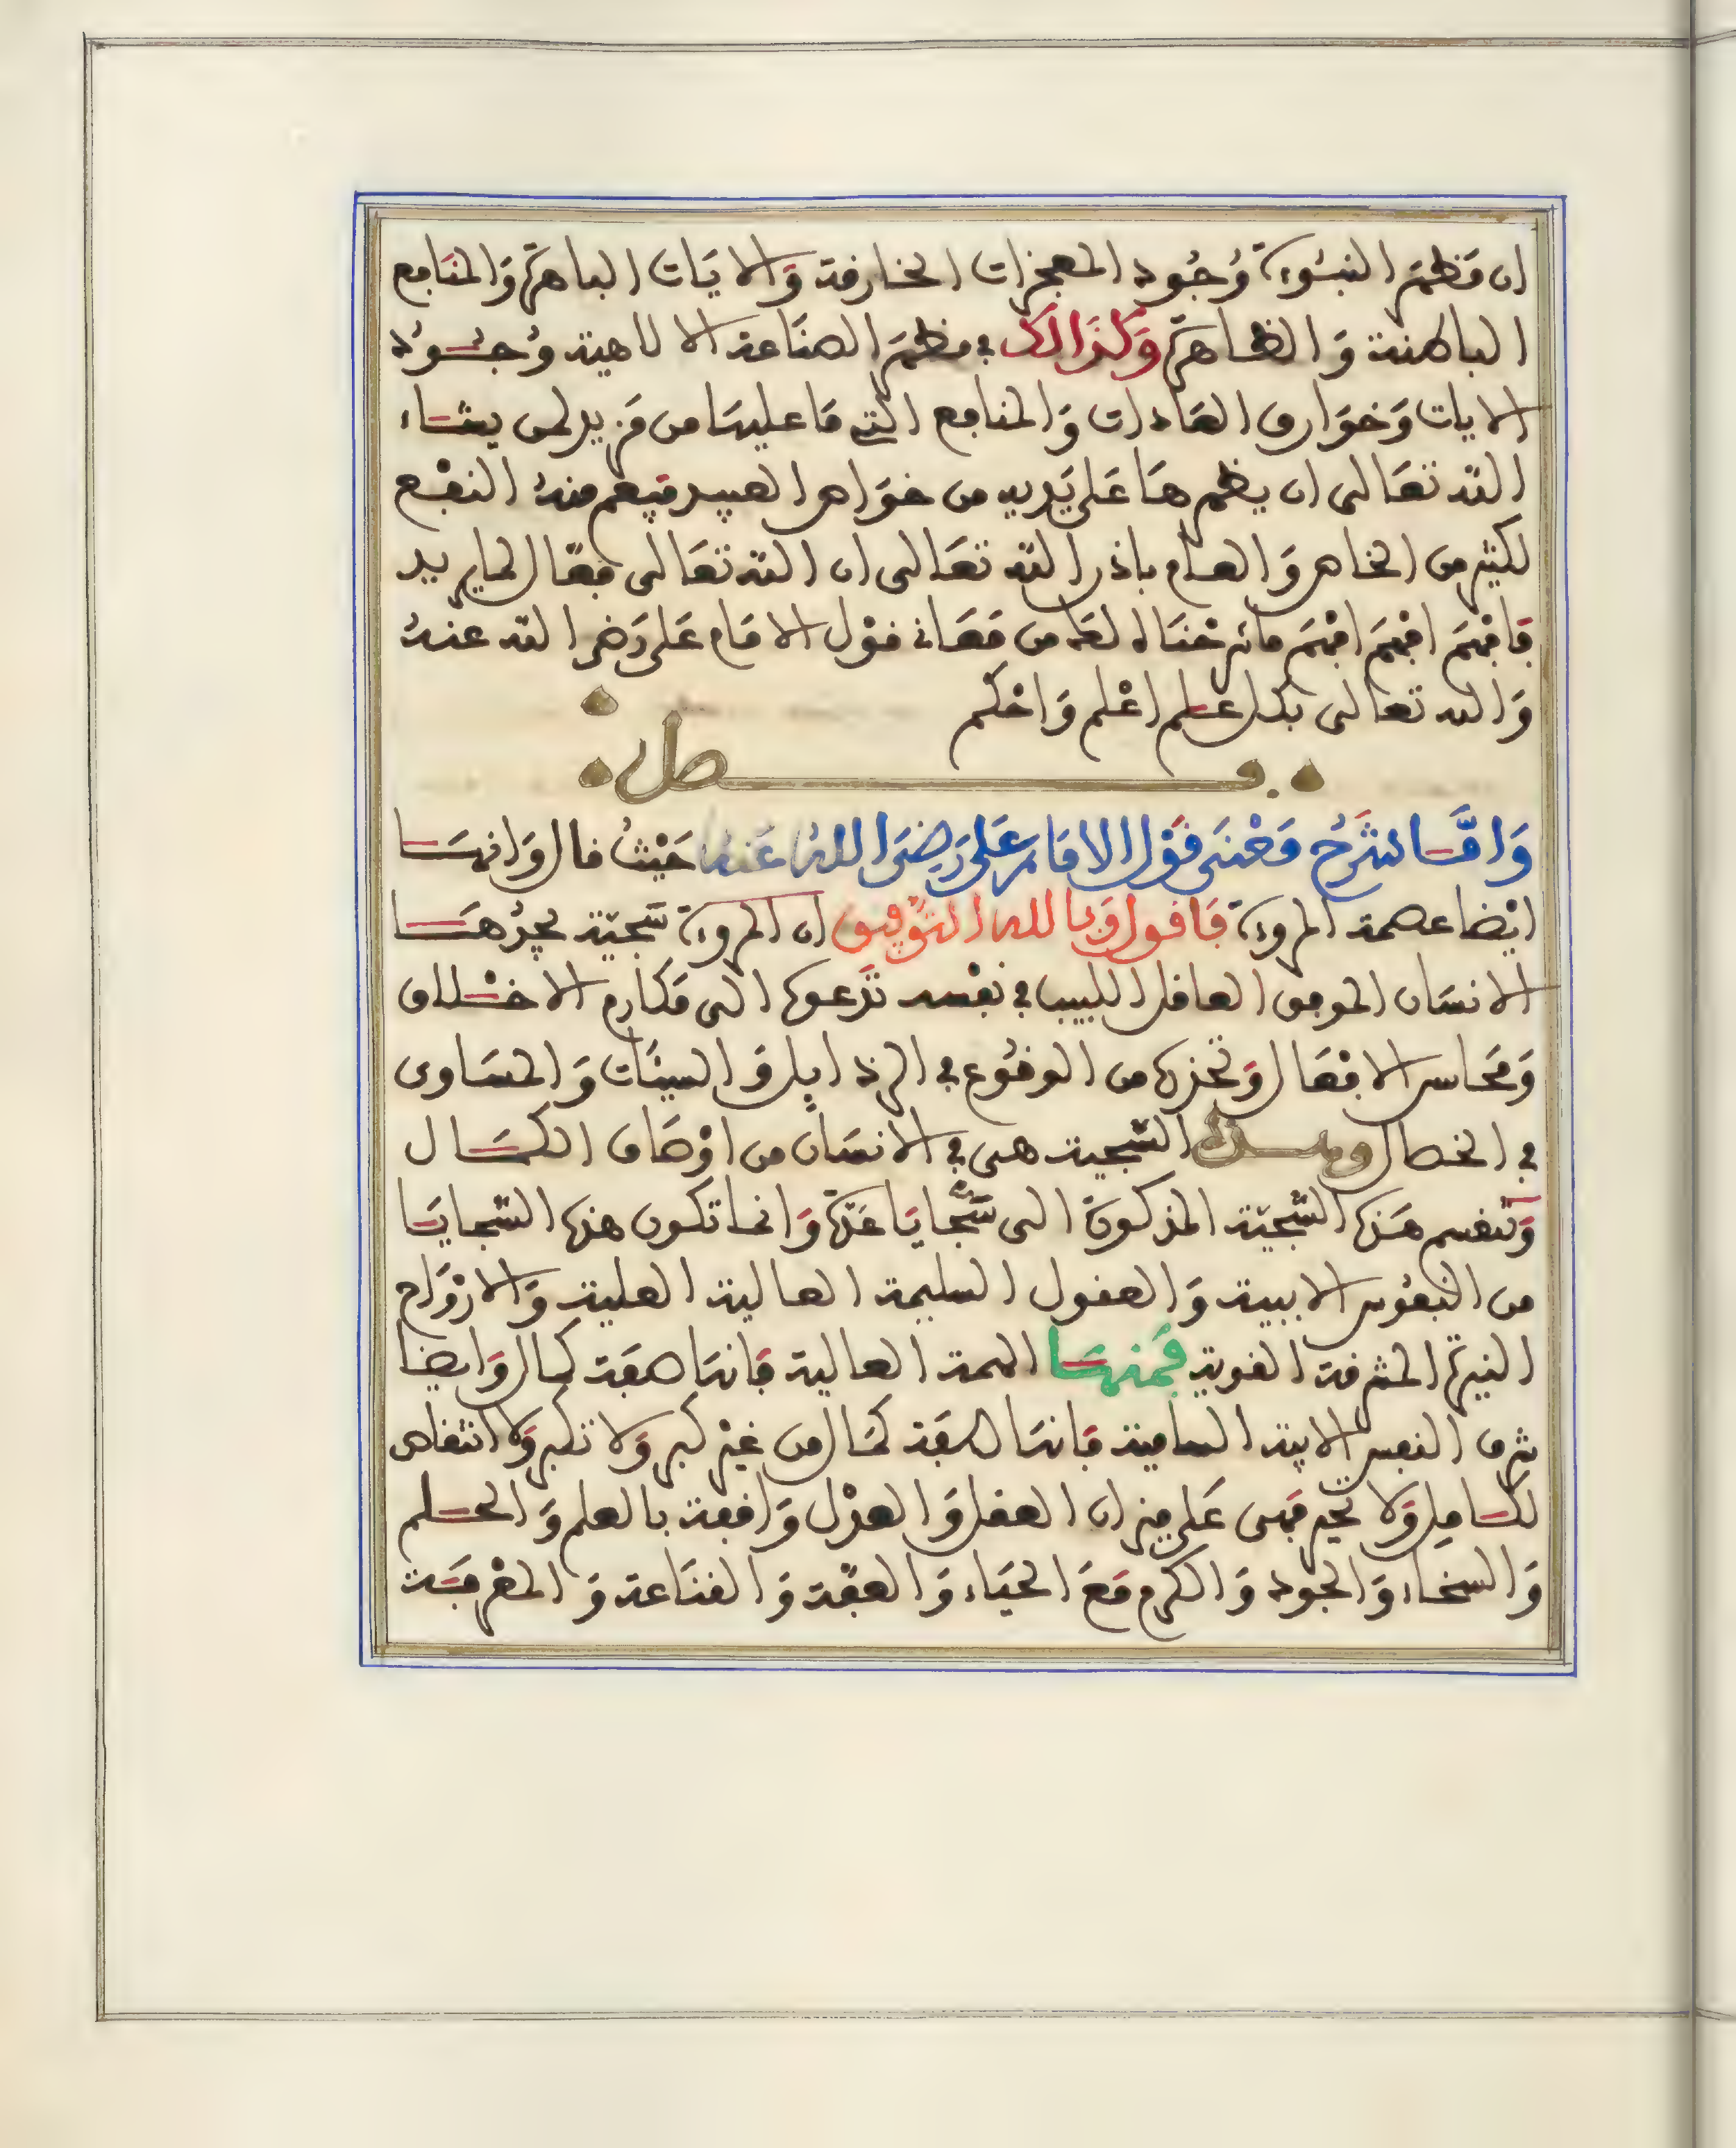 ان مَظهَرَ النبُوءَة وُجُود المعجزات الخارقة وَالايَات الباهرَة وَالمنَافع
الباطنة وَالظاهرَة وَكَذَالكَ في مظهَرَ الصنَاعة الالاهية وُجُوُد
الايات وَخوَارق العَادات وَالمنافع التى مَا عليهَا من مَزيد لمن يشَاء
اللّه تعَالى ان يظهرهَا عَلى يَديه من خوَاص العبيد فيَعم منهُ النفْع
لكثير من الخاص وَالعام باذن اللّه تعَالى ان اللّه تعَالى فعّال لما يريد
فَافهَم افهَم افهَم مَا شرَحْنَاه لعَه من مَعَانى قوْل الامَام عَلى رَضى اللّه عنهُ
وَالله تعَالى بكل علم اعْلم وَاحْكم
فصل
وَامَّا شَرْحُ مَعْنَى قَوْل الامَام عَلى رَضىَ اللهُ عَنهُ حَيْثُ قال وَانهَا
ايْضا عصمة المروءَة فَاقول وَبالله التوْفيق ان المروءَة سَجيّة يجدُهَا
الانسَان الموفق العاقل اللبيب في نفْسه تَدعوه الى مَكارم الاخْلاق
وَمَحاسن الافعَال وَتحَذره من الوقُوع في الرذايل وَالسيئَات وَالمسَاوى
في الخصال وهذه السَّجية هى في الانسَان من اوْصَاف الكمَال
وَتنقسم هَذه السَّجيّة المذكورَة الى سَجَايَا عدّة وَانما تكون هذه السّجايَا
من النفُوس الابيية وَالعقول السليمة العالية العلية وَالارْوَاح
النيرة المشرقة القوية فَمنهَا الهمة العالية فَانهَا صفَة كمال وَايضا
شرف النفس الابية السامية فَانهَا صفَة كمَال من غيْر كبر وَلا تكبر وَلا انتقاص
لكامِل وَلا تحَير فهى عَلى ميزان العقل وَالعدْل وَاقفة بالعلم وَالحلم
وَالسخاء وَالجود وَالكرم مَعَ الحيَاء وَالعفّة وَالقنَاعة وَالمعْرفَة